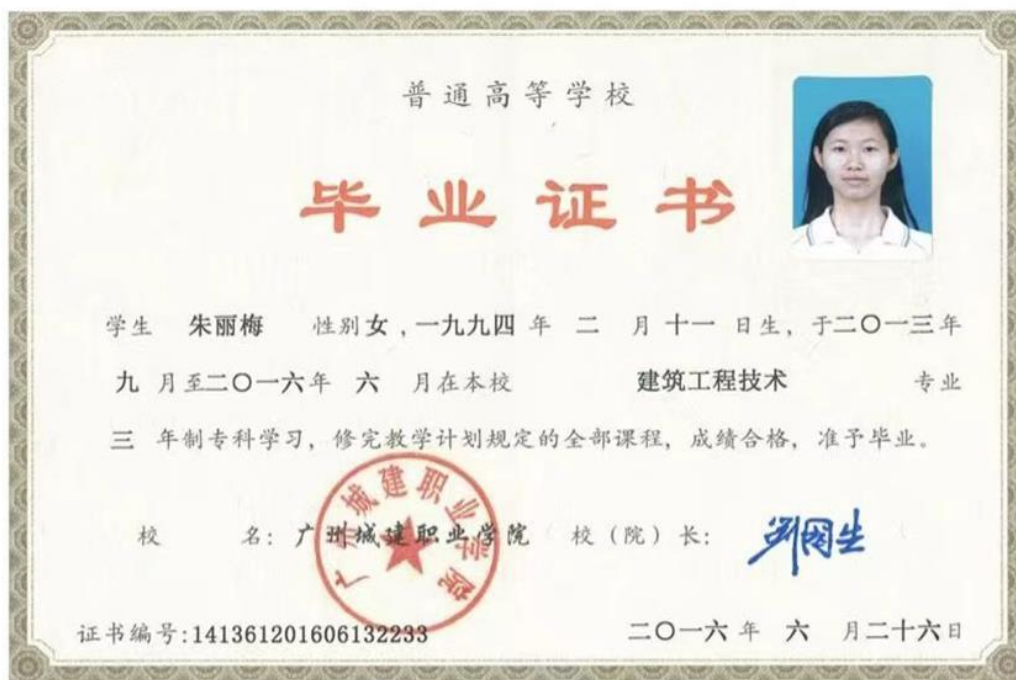 普通高等学校
毕业证书
学生 朱丽梅 性别女,一九九四 年 二 月 十一 日生, 于二〇一三年
九 月至二〇一六年 六 月在本校 建筑工程技术 专业
三 年制专科学习, 修完教学计划规定的全部课程, 成绩合格, 准予毕业。
校 名: 广州城建职业学院 校(院)长: 刘国生
广州城建职业学院
证书编号:141361201606132233 二〇一六 年 六 月二十六日